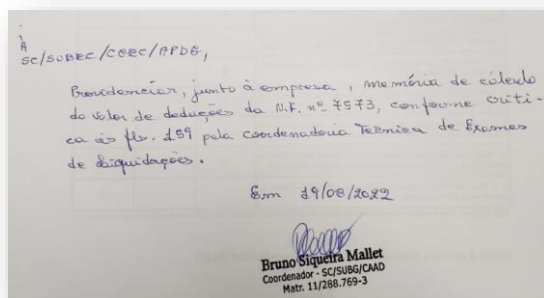 À
SC/SUBEC/CEEC/APDE,
Providenciar, junto à empresa, memória de cálculo
do valor de deduções da N.F. nº 7573, conforme críti-
ca às fls. 159 pela coordenadoria Técnica de Exames
de Liquidações.
Em 19/08/2022
Bruno Siqueira Mallet
Coordenador - SC/SUBG/CAAD
Matr. 11/288.769-3